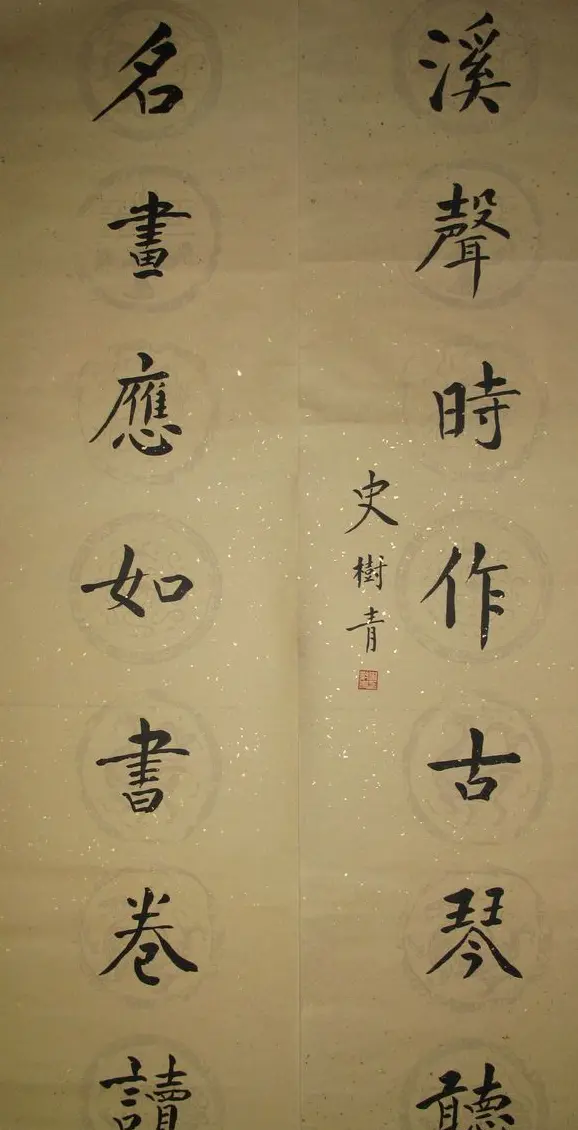 溪聲時作古琴聽
史樹青
名畫應如書卷讀